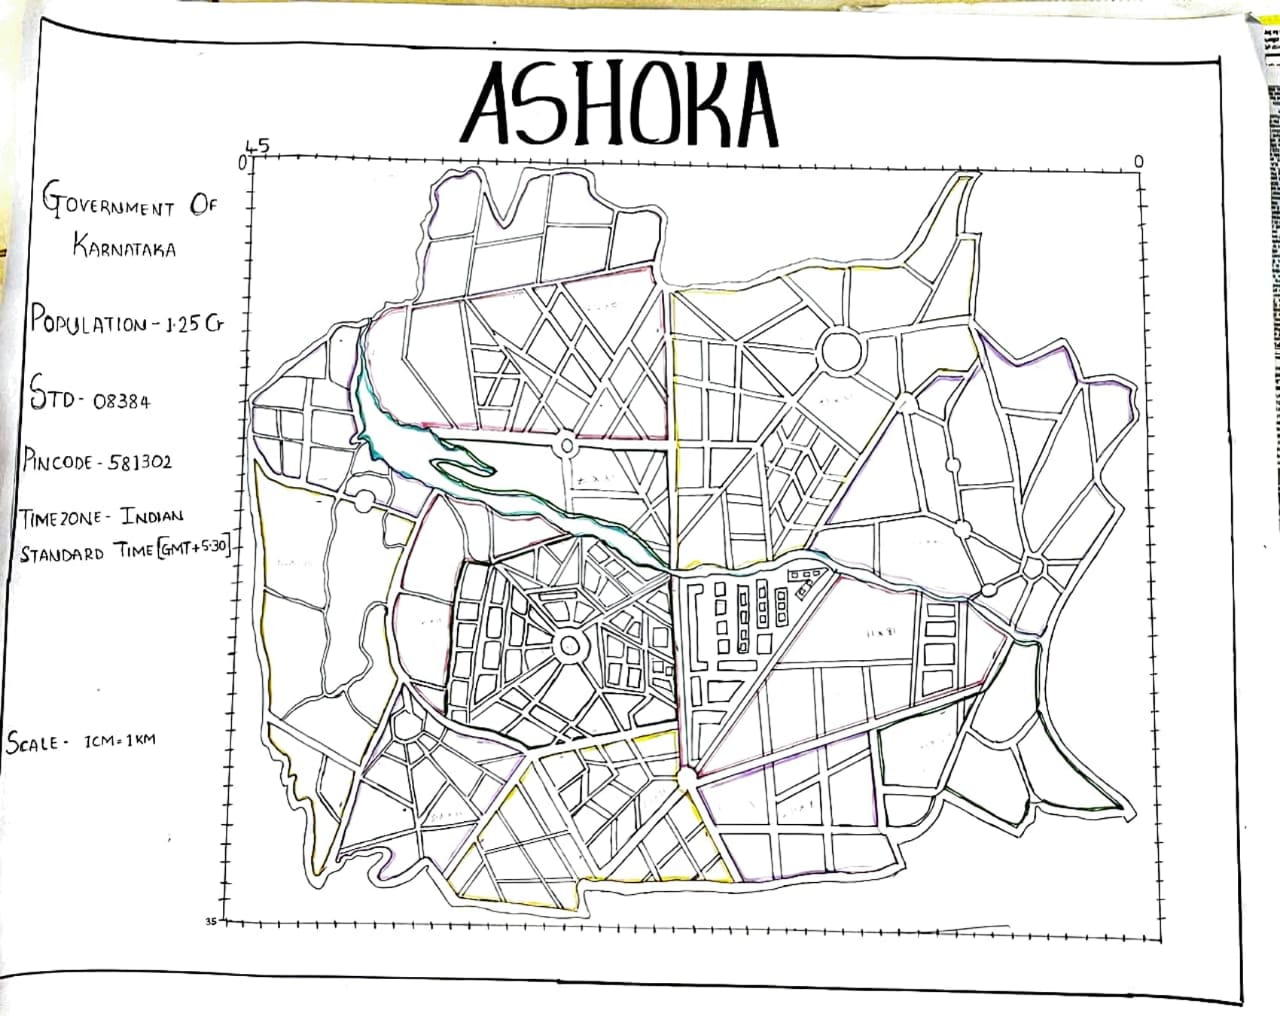 ASHOKA
45
0
0
GOVERNMENT OF
KARNATAKA
POPULATION - 1.25 Cr
STD - 08384
PINCODE - 581302
TIMEZONE - INDIAN
STANDARD TIME [GMT+5:30]
SCALE - 1CM=1KM
35